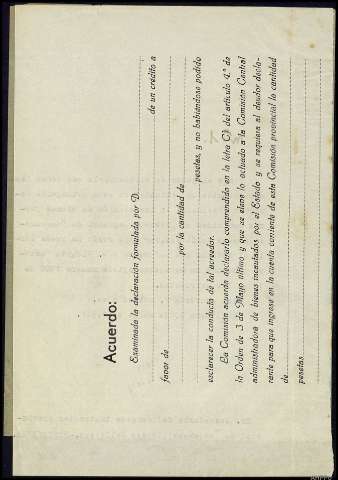 Acuerdo:
Examinada la declaración formulada por D.
de un crédito a
favor de
por la cantidad de
pesetas, y no habiéndose podido
esclarecer la conducta de tal acreedor.
La Comisión acuerda declararlo comprendido en la letra C) del artículo 4.º de
la Orden de 3 de Mayo último y que se eleve lo actuado a la Comisión Central
administradora de bienes incautados por el Estado y se requiera al deudor decla-
rante para que ingrese en la cuenta corriente de esta Comisión provincial la cantidad
de
pesetas